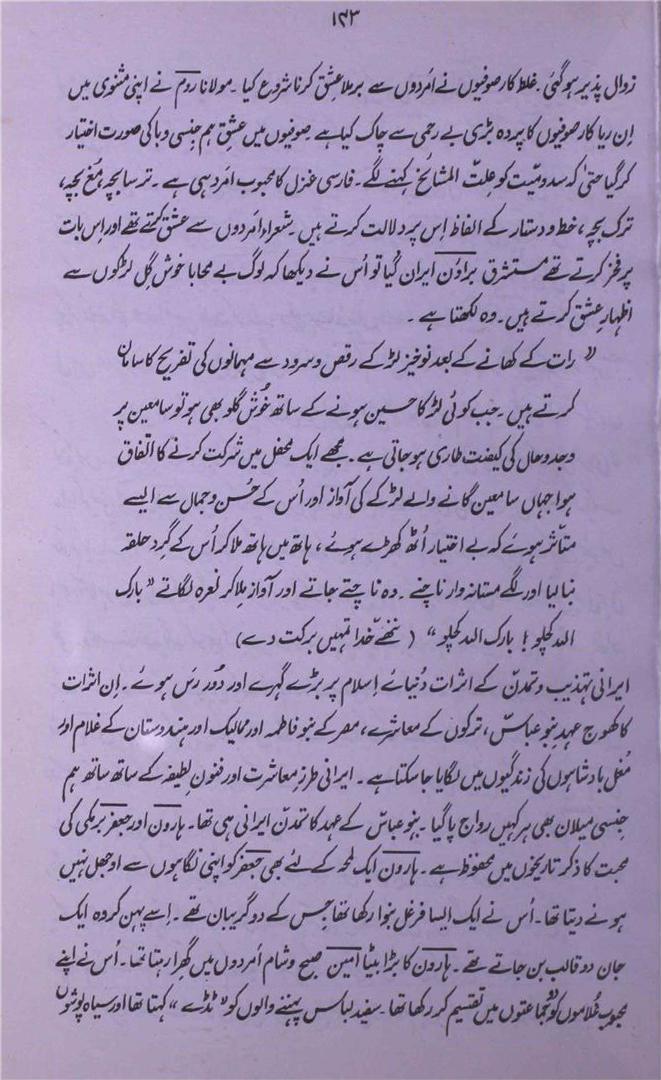 ۱۴۳
زوال پذیر ہو گئی۔ غلط کار صوفیوں نے اَمردوں سے برملا عشق کرنا شروع کیا۔ مولانا روم نے اپنی مثنوی میں
اِن ریا کار صوفیوں کا پردہ بڑی بے رحمی سے چاک کیا ہے۔ صوفیوں میں عشق ہم جنسی وبا کی صورت اختیار
کر گیا حتیٰ کہ سدومیّت کو علّت المشائخ کہنے لگے۔ فارسی غزل کا محبوب امرد ہی ہے۔ ترسا بچہ، مُغ بچہ،
ترک بچہ، خط و دستار کے الفاظ اِس پر دلالت کرتے ہیں۔ شعراء اَمردوں سے عشق کرتے تھے اور اِس بات
پر فخر کرتے تھے مستشرق براؤن ایران گیا تو اُس نے دیکھا کہ لوگ بے محابا خوش گِل لڑکوں سے
اظہارِ عشق کرتے ہیں۔ وہ لکھتا ہے۔
”رات کے کھانے کے بعد نوخیز لڑکے رقص و سرود سے مہمانوں کی تفریح کا سامان
کرتے ہیں۔ جب کوئی لڑکا حسین ہونے کے ساتھ خُوش گلو بھی ہو تو سامعین پر
وجد و حال کی کیفیت طاری ہو جاتی ہے۔ مجھے ایک محفل میں شرکت کرنے کا اتّفاق
ہوا جہاں سامعین گانے والے لڑکے کی آواز اور اُس کے حُسن و جمال سے ایسے
متاثر ہوئے کہ بے اختیار اُٹھ کھڑے ہوئے، ہاتھ میں ہاتھ ملا کر اُس کے گرد حلقہ
بنا لیا اور لگے مستانہ وار ناچنے۔ وہ ناچتے جاتے اور آواز ملا کر نعرہ لگاتے ”بارک
اللہ کچلو! بارک اللہ کچلو“ (ننھے خدا تمہیں برکت دے)
ایرانی تہذیب و تمدّن کے اثرات دُنیائے اِسلام پر بڑے گہرے اور دُور رَس ہوئے۔ اِن اثرات
کا کھوج عہدِ بنو عباس، ترکوں کے معاشرے، مصر کے بنو فاطمہ اور ممالیک اور ہندوستان کے غلام اور
مُغل بادشاہوں کی زندگیوں میں لگایا جا سکتا ہے۔ ایرانی طرزِ معاشرت اور فنونِ لطیفہ کے ساتھ ساتھ ہم
جنسی میلان بھی ہر کہیں رواج پا گیا۔ بنو عباس کے عہد کا تمدّن ایرانی ہی تھا۔ ہارون اور جعفر برمکی کی
محبت کا ذکر تاریخوں میں محفوظ ہے۔ ہارون ایک لمحہ کے لئے بھی جعفر کو اپنی نگاہوں سے اوجھل نہیں
ہونے دیتا تھا۔ اُس نے ایک ایسا فرغل بنوا رکھا تھا جس کے دو گریبان تھے۔ اِسے پہن کر وہ ایک
جان دو قالب بن جاتے تھے۔ ہارون کا بڑا بیٹا امین صبح و شام اَمردوں میں گھِرا رہتا تھا۔ اُس نے اپنے
محبوب غلاموں کو دو جماعتوں میں تقسیم کر رکھا تھا۔ سفید لباس پہننے والوں کو ”ٹڈے“ کہتا تھا اور سیاہ پوشوں